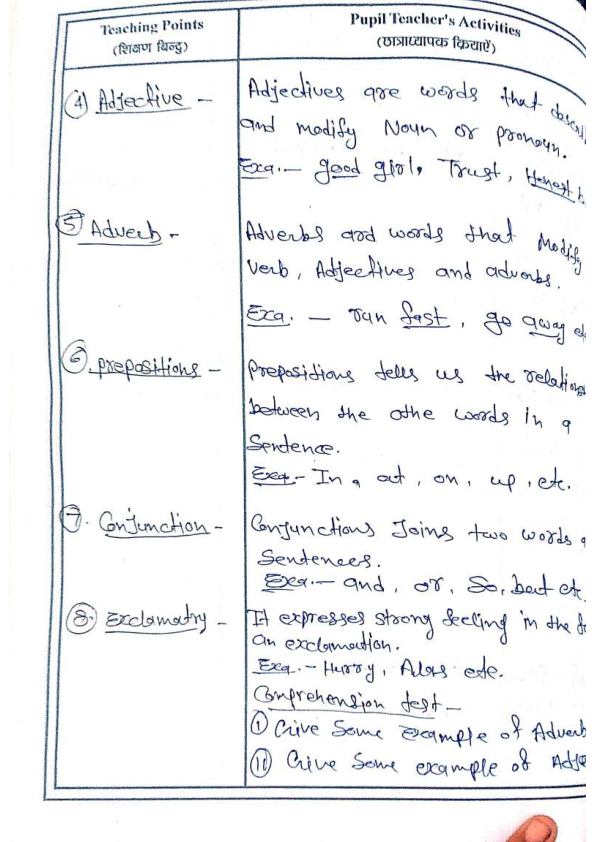 Teaching Points
(शिक्षण बिन्दु)
Pupil Teacher's Activities
(छात्राध्यापक क्रियाऐं)
④ Adjective -
Adjectives are words that descri
and modify Noun or pronoun.
Exa.- good girl, Trust, Honest
⑤ Adverb -
Adverbs ard words that Modify
Verb, Adjectives and adverbs.
Exa. - run fast, go away et
⑥ prepositions -
Prepositions tells us the relations
between the othe words in a
Sentence.
Exa.- In, at, on, up, etc.
⑦. Conjunction -
Conjunctions Joins two words a
Sentences.
Exa.- and, or, So, but etc.
⑧. Exclamatry -
It expresses strong feeling in the fo
an exclamation.
Exa.- Hurry, Alas etc.
Comprehension test -
① Give Some Example of Adverb
⑪ Give Some example of Adje